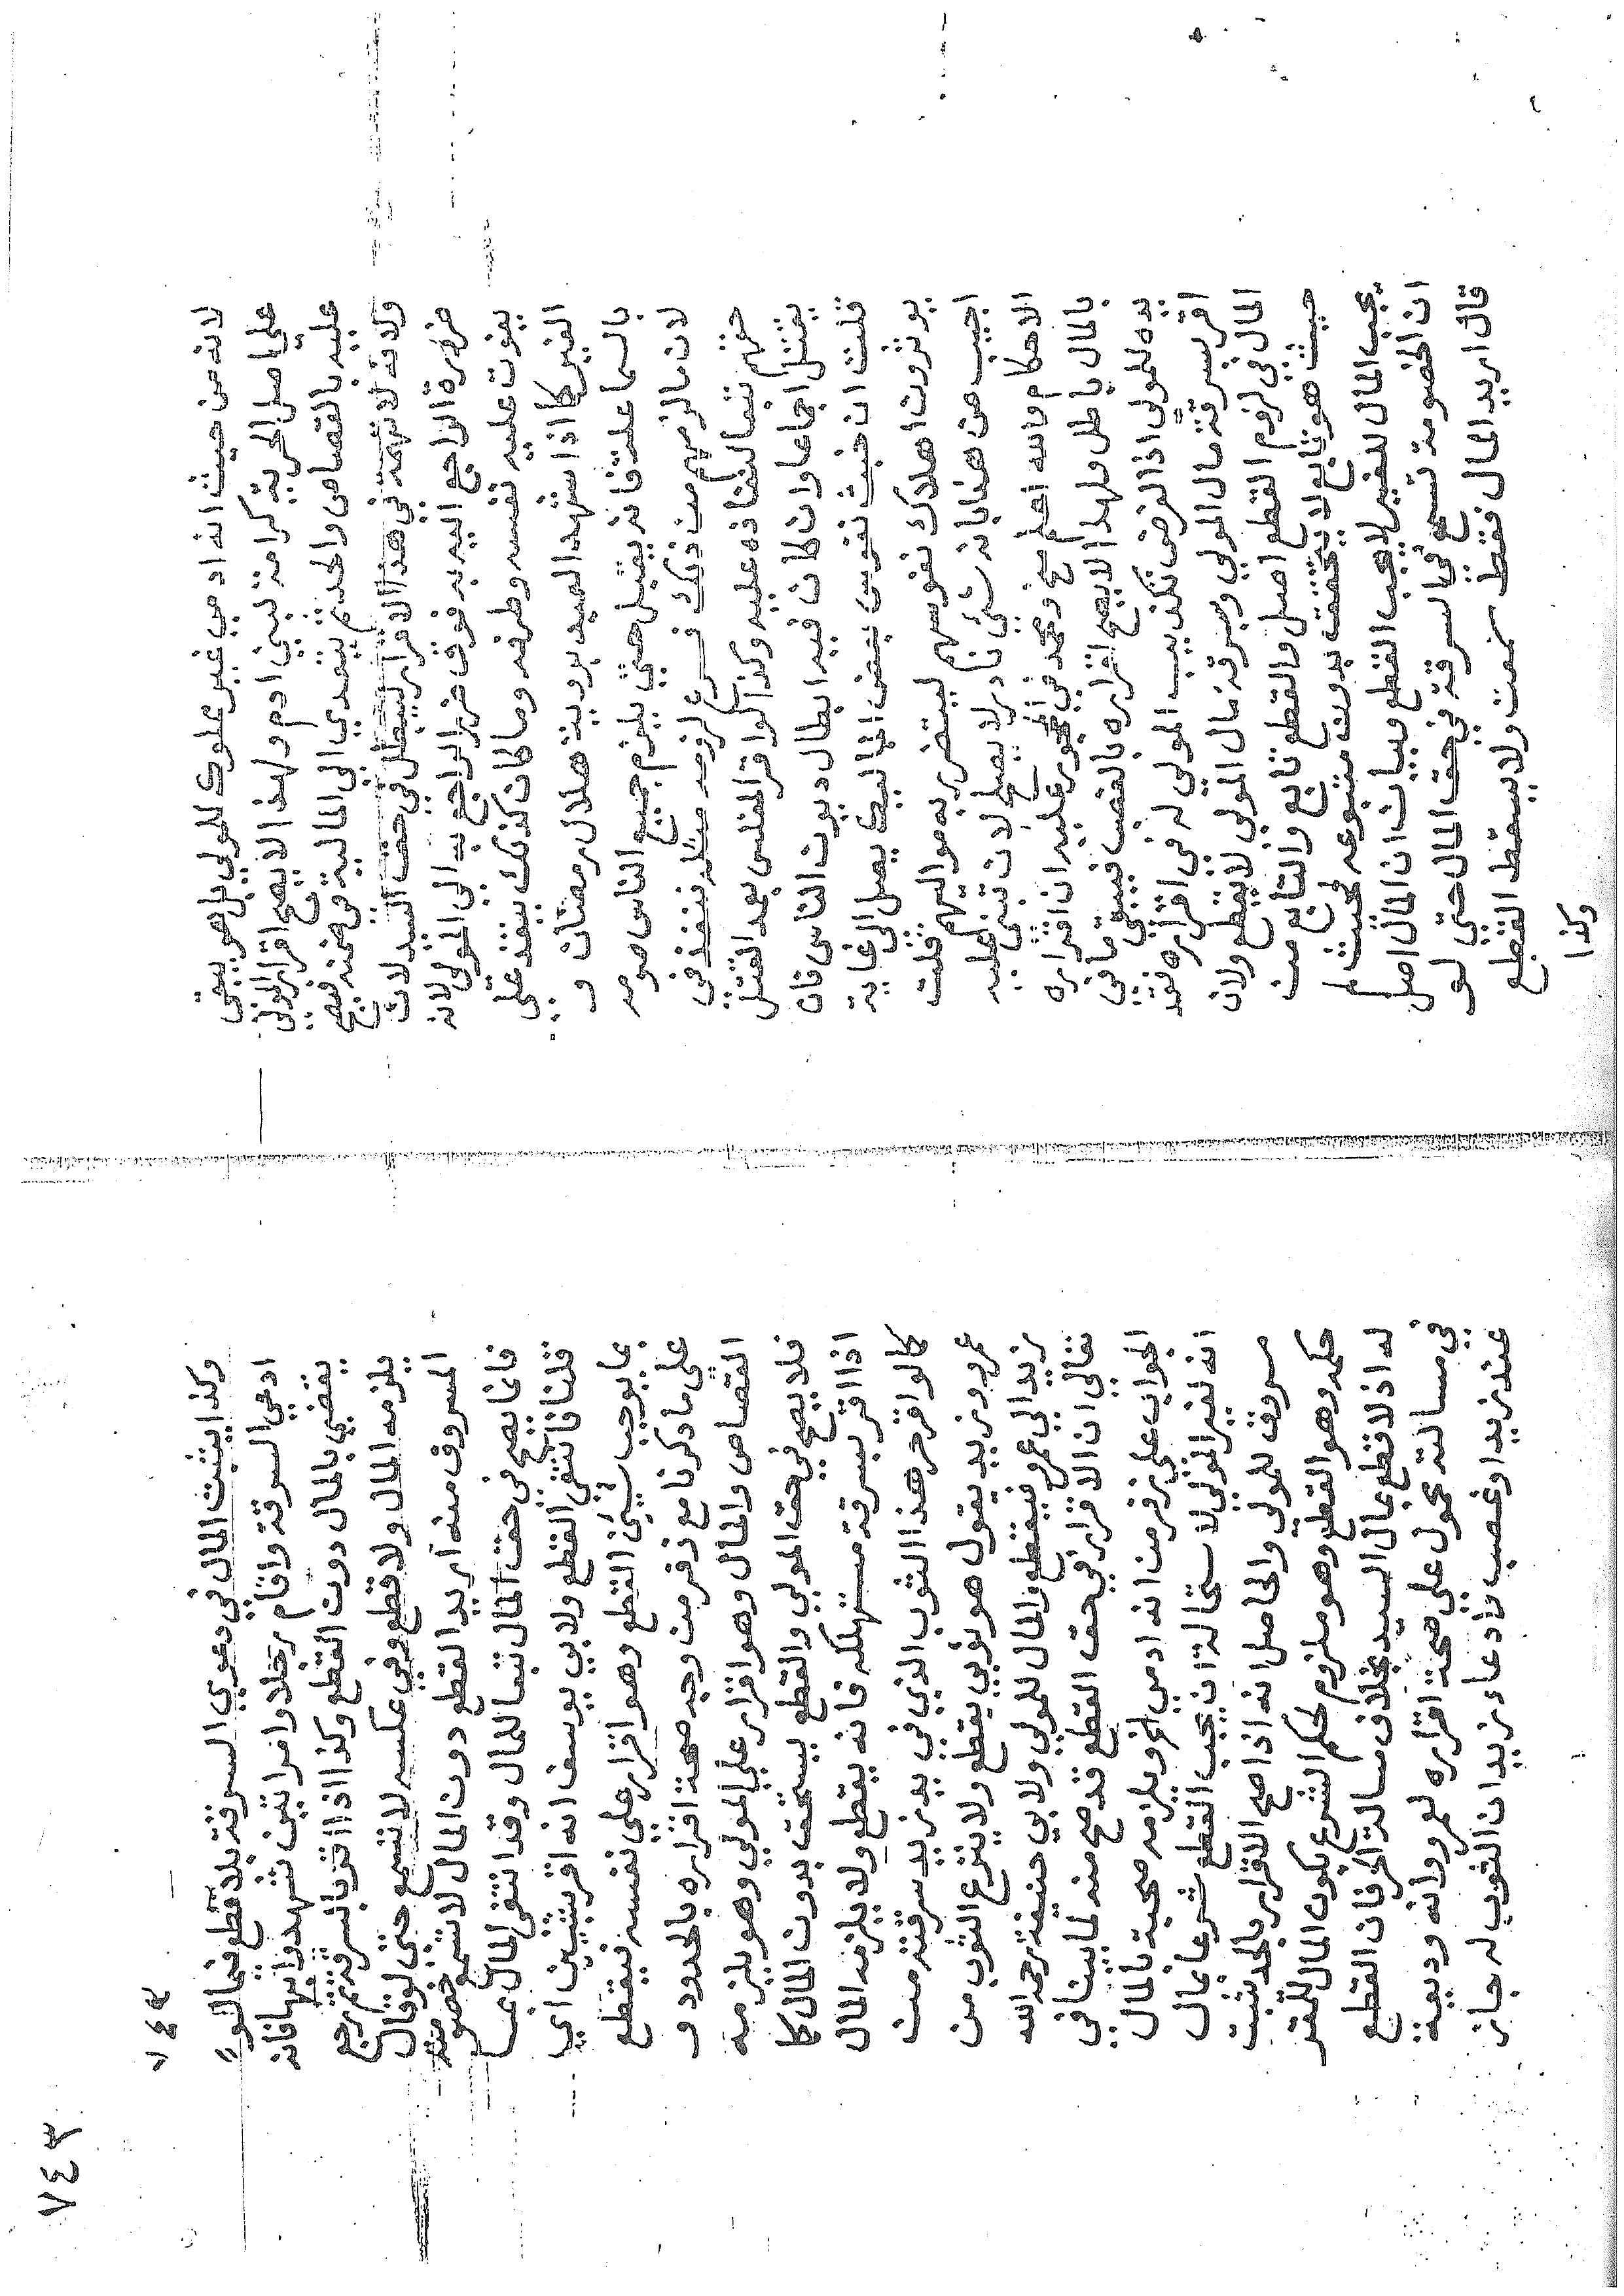 لانه من حيث انه ادمي غير مملوك للمولي بل هو يبقي
علي اصل الحرية كرامة لبني ادم ولهذا لا يصح اقرار المولي
عليه بالقصاص والحد ثم يتعدي الي المالية في ضمنه فيصح
ولانه لا تهمة في هذا الاقرار ليبطل في حق السيد لان
ضرره الراجع اليه به فوق ضرر الراجع به الي المولي لانه
يفوت عليه نفسه وطرفه وما كان كذلك ينفذ علي
الغير كما اذا شهد العبد بروية هلال رمضان و
بالسما علة فانه يقبل حتي يلزم جميع الناس صومه
لان ما لزمهم من ذلك فرع لزومه مثله فينفذ في
حقهم تبعا لنفاذه عليه وكذا لو اقر المفلس بعد القتل
يقتل اجماعا وان كان فيه ابطال ديون الناس فان
قلت ان خبث نفوس بعض المماليك يصل الي غاية
يوثرون اهلاك نفوسهم ليتضرر به مواليهم قلت
اجيب من هذا بانه شئ نادر لا يصلح لان تبني عليه
الاحكام والله اعلم مح ومحمد في المحجور عليه ان اقراره
بالمال باطل ولهذا لا يصح اقراره بالغصب فيبقي ما في
يده للمولي اذ الغرض تكذيب المولي له في اقراره فقد
اقر بسرقة مال المولي وسرقة مال المولي لا يقطع ولان
المال في لزوم القطع اصل والقطع تابع والتابع من
حيث هو تابع لا يتحقق بدون متبوعه فحيث لم
يجب المال للغير لا يجب القطع وبيان ان المال اصل
ان الخصومة تسمع في السرقة في حق المال حتي لو
قال اريد المال فقط سمعت ولا يسقط القطع
وكذا
٧٤٣
٧٤٤
وكذا يثبت المال في دعوي السرقة بلا قطع فيما لو
ادعي السرقة واقام رجلا وامراتين تشهد وانها فانه
يقضي بالمال دون القطع وكذا اذا اقر بالسرقة ثم رجع
يلزمه المال ولا قطع وفي عكسه لا تسمع حتي لو قال
المسروق منه اريد القطع دون المال لا تسمع خصومته
فانما يصح في حق المال تبعا للمال وقد انتفي المال
قلنا فانتفي القطع ولابي يوسف انه اقر بشيئين اي
بما يوجب شيئين القطع وهو اقرار علي نفسه فيقطع
علي ما ذكرنا مع زفر من وجه صحة اقراره بالحدود و
القصاص والمال وهو اقرار علي المولي وهو يلزمه
فلا يصح في حق المولي والقطع يستحق بدون المال كما
اذا اقر بسرقة مستهلكه فانه يقطع ولا يلزمه المال
كما لو اقر حر هذا الثوب الذي في يد زيد سرقته من
عمرو وزيد يقول هو ثوبي يقطع ولا ينزع الثوب من
زيد الي عمرو فيقطع والمال للمولي ولابي حنيفة رحمه الله
تعالي ان الاقرار في حق القطع قد صح منه لما بينا في
الجواب علي زفر من انه ادمي اخر ويلزمه صحته بالمال
انه لغير المولي لا ستحالة ان يجب القطع شرعا بمال
مسروق للمولي والحاصل انه اذا صح الاقرار بالحد ثبت
حكمه وهو القطع وهو ملزوم لحكم الشرع بكون المال للمقر
له اذ لا قطع بمال السيد بخلاف مسالة الحر فان القطع
في مسالته محمول علي صحة اقراره لعمرو وانه وديعة
عند زيد او غصب فادعاء زيد ان الثوب له جاز